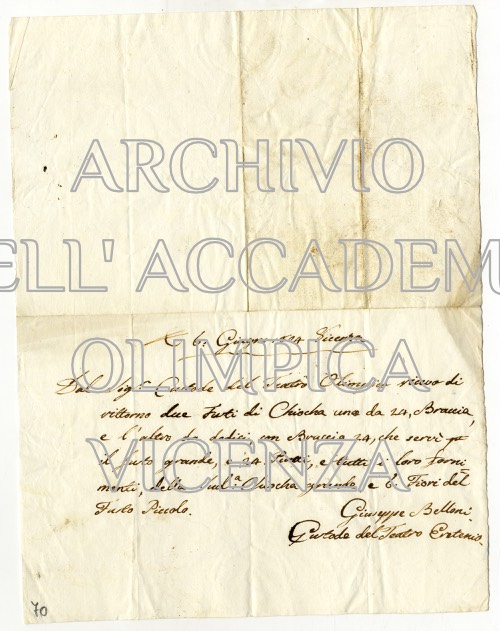 ARCHIVIO
ELL' ACCADEM
OLIMPICA
VICENZA
Giugno Vicenza
Dal Sig.r Custode del Teatro Olimpico ricevo di
rittorno due Fusti di Chiocha uno da 24, Braccia,
e l'altro da dodici, con Braccia 24, che servì p
il fusto grande, e 24 Piatti, e tutti i loro forni
menti, della Chiocha grande e 6 Fiori del
Fusto Piccolo.
Giuseppe Belloni
Custode del Teatro Eretenio.
70